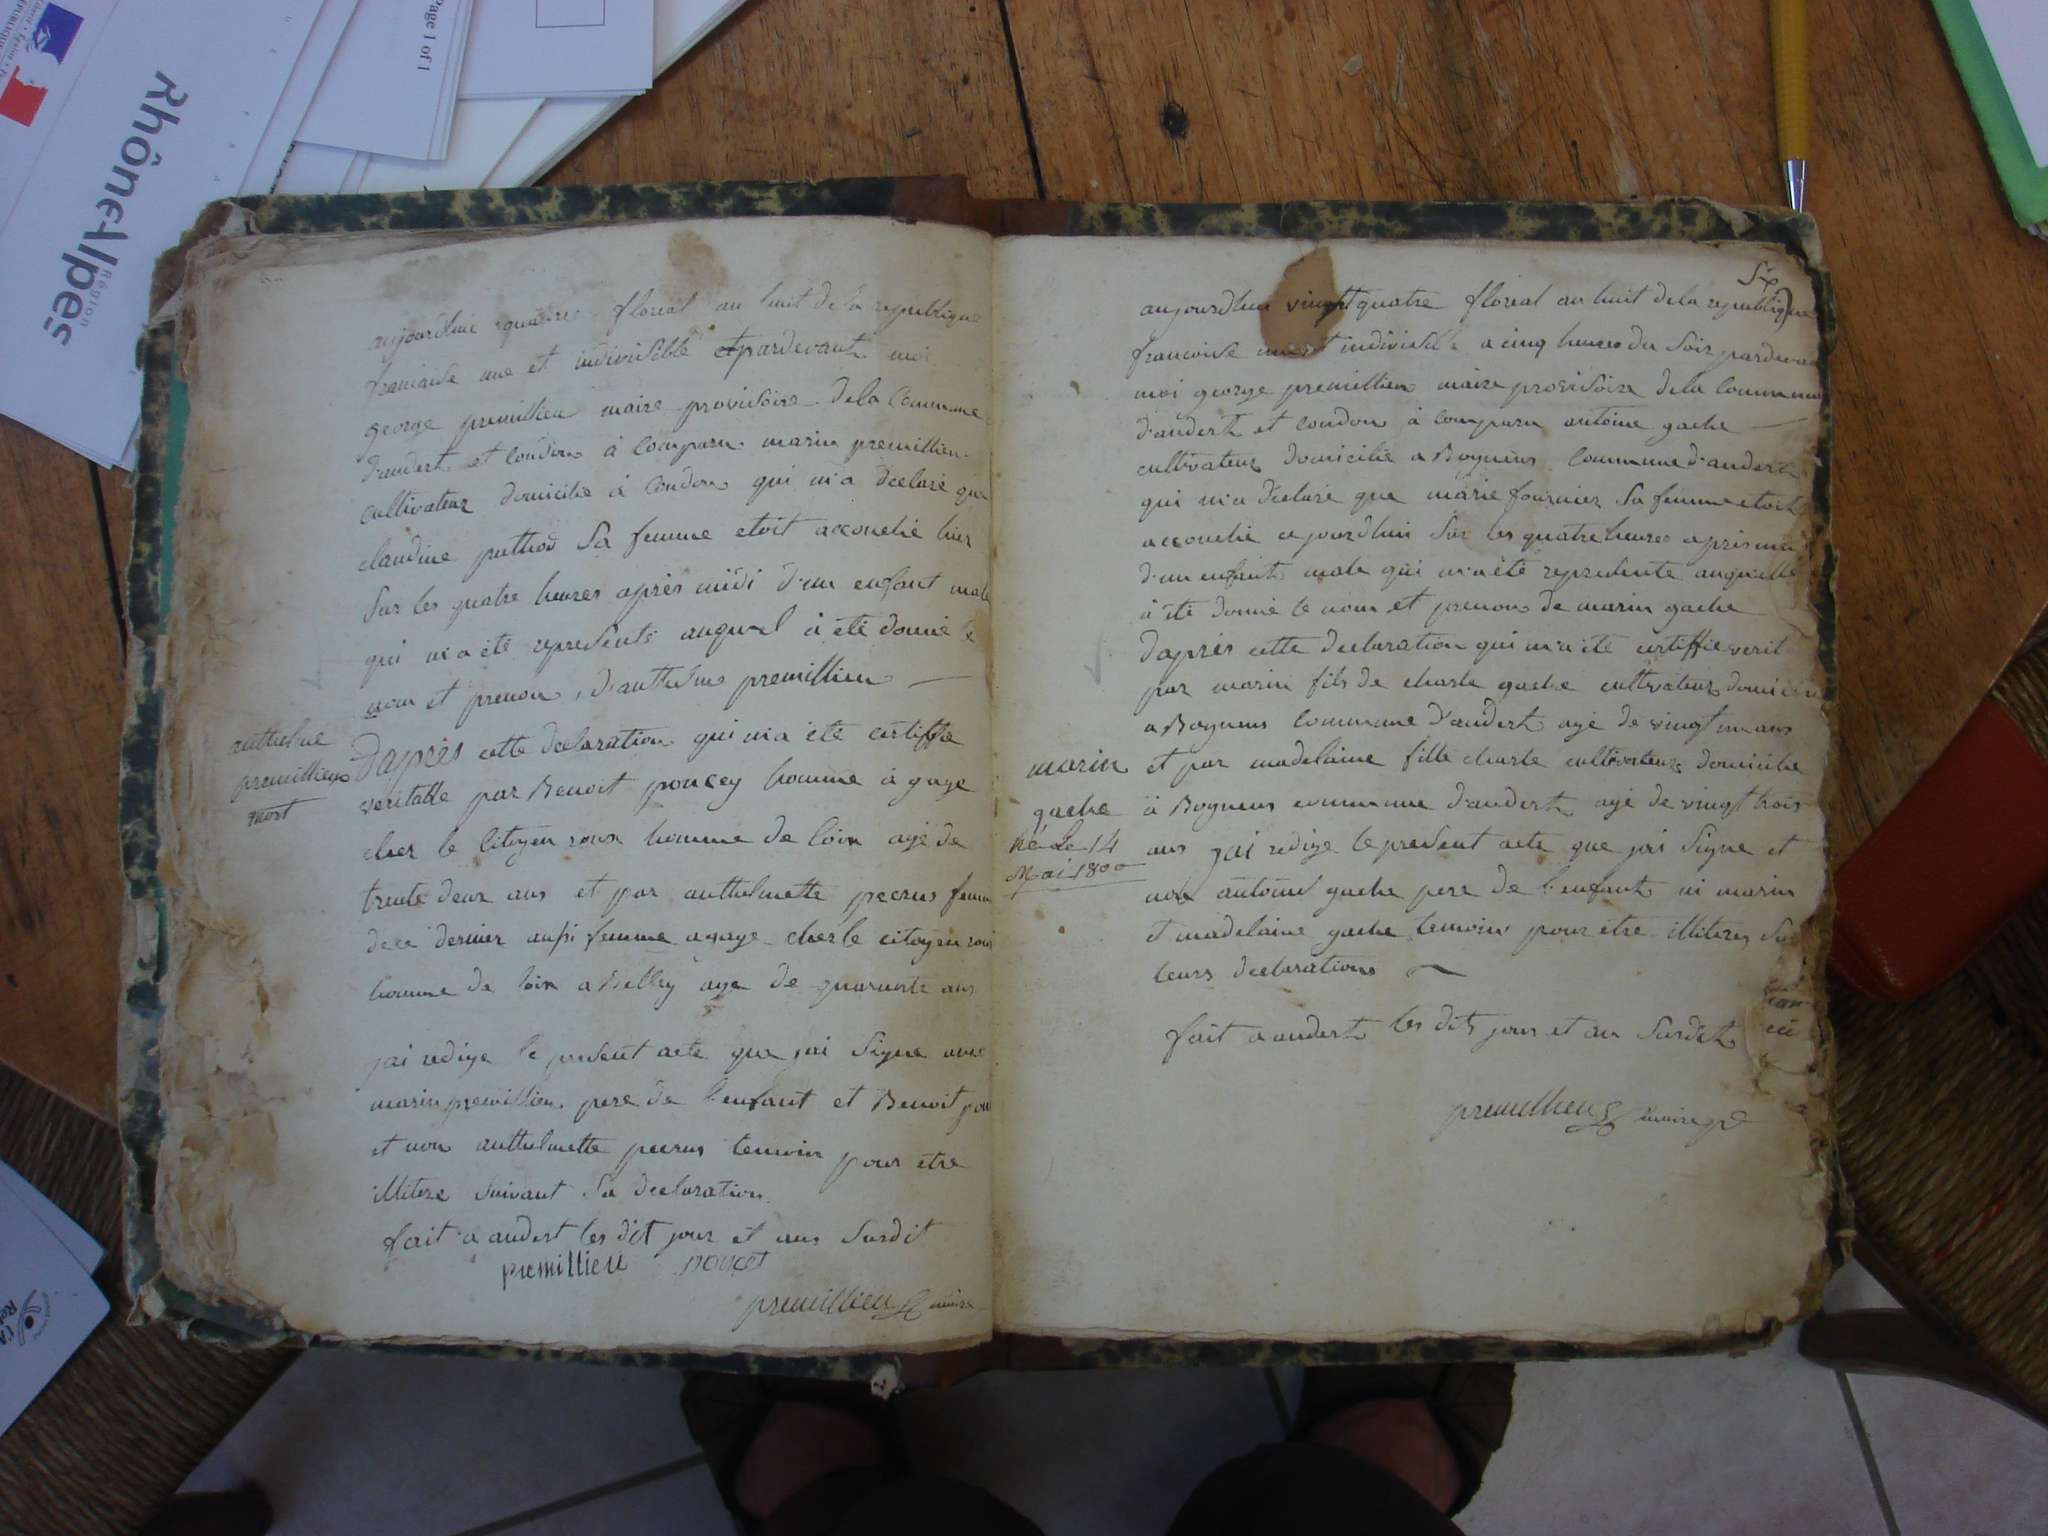 Rhône-Alpes
Région
Page 1 of 1
aujourdhui quatre floreal an huit de la republique
francaise une et indivisible et pardevant moi
george premillieu maire provisoire de la Commune
d'andert et Condon à comparu marin premillieu
cultivateur domicilie à Condon qui m'a declaré que
claudine puthod sa femme etoit accouchée hier
sur les quatre heures après midi d'un enfant male
qui m'a été representé auquel à été donné le
nom et prenom d'anthelme premillieu
anthelme
premillieux
mort
D'après cette declaration qui m'a été certiffie
veritable par Benoit poncey homme à gage
chez le Citoyen roux homme de loix agé de
trente deux ans et par anthelmette peerus femme
de ce dernier aussi femme a gage chez le citoyen roux
homme de loix a Belley age de quarante ans
j'ai redige le present acte que j'ai Signe avec
marin premillieu pere de l'enfant et Benoit pon
et non anthelmette peerus temoin pour etre
illitere suivant sa declaration
fait a andert les dit jour et ans susdit
premillieu poncet
premillieu maire
Six
aujourdhui vingt quatre floreal an huit de la republique
francoise une et indivisible a cinq heures du soir pardevan
moi george premillieu maire provisoire de la Commune
d'andert et condon à comparu antoine gache
cultivateur domicilie a Bognens Commune d'andert
qui m'a declaré que marie fournier sa femme etoit
accouchée cejourdhui sur les quatre heures apres mi
d'un enfant male qui m'a été representé auquelle
à été donné le nom et prenom de marin gache
D'après cette declaration qui m'a été certiffie verit
par marin fils de charle gache cultivateur domicilie
a Bognens Commune d'andert agé de vingt un ans
et par madelaine fille charle cultivateur domicilie
à Bognens commune d'andert agé de vingt trois
ans j'ai redige le present acte que j'ai Signe et
non antoine gache pere de l'enfant ni marin
et madelaine gache temoins pour etre illiteres sur
leurs declarations
marin
gache
né Le 14
Mai 1800
fait a andert les dits jour et an susdit
premillieu maire